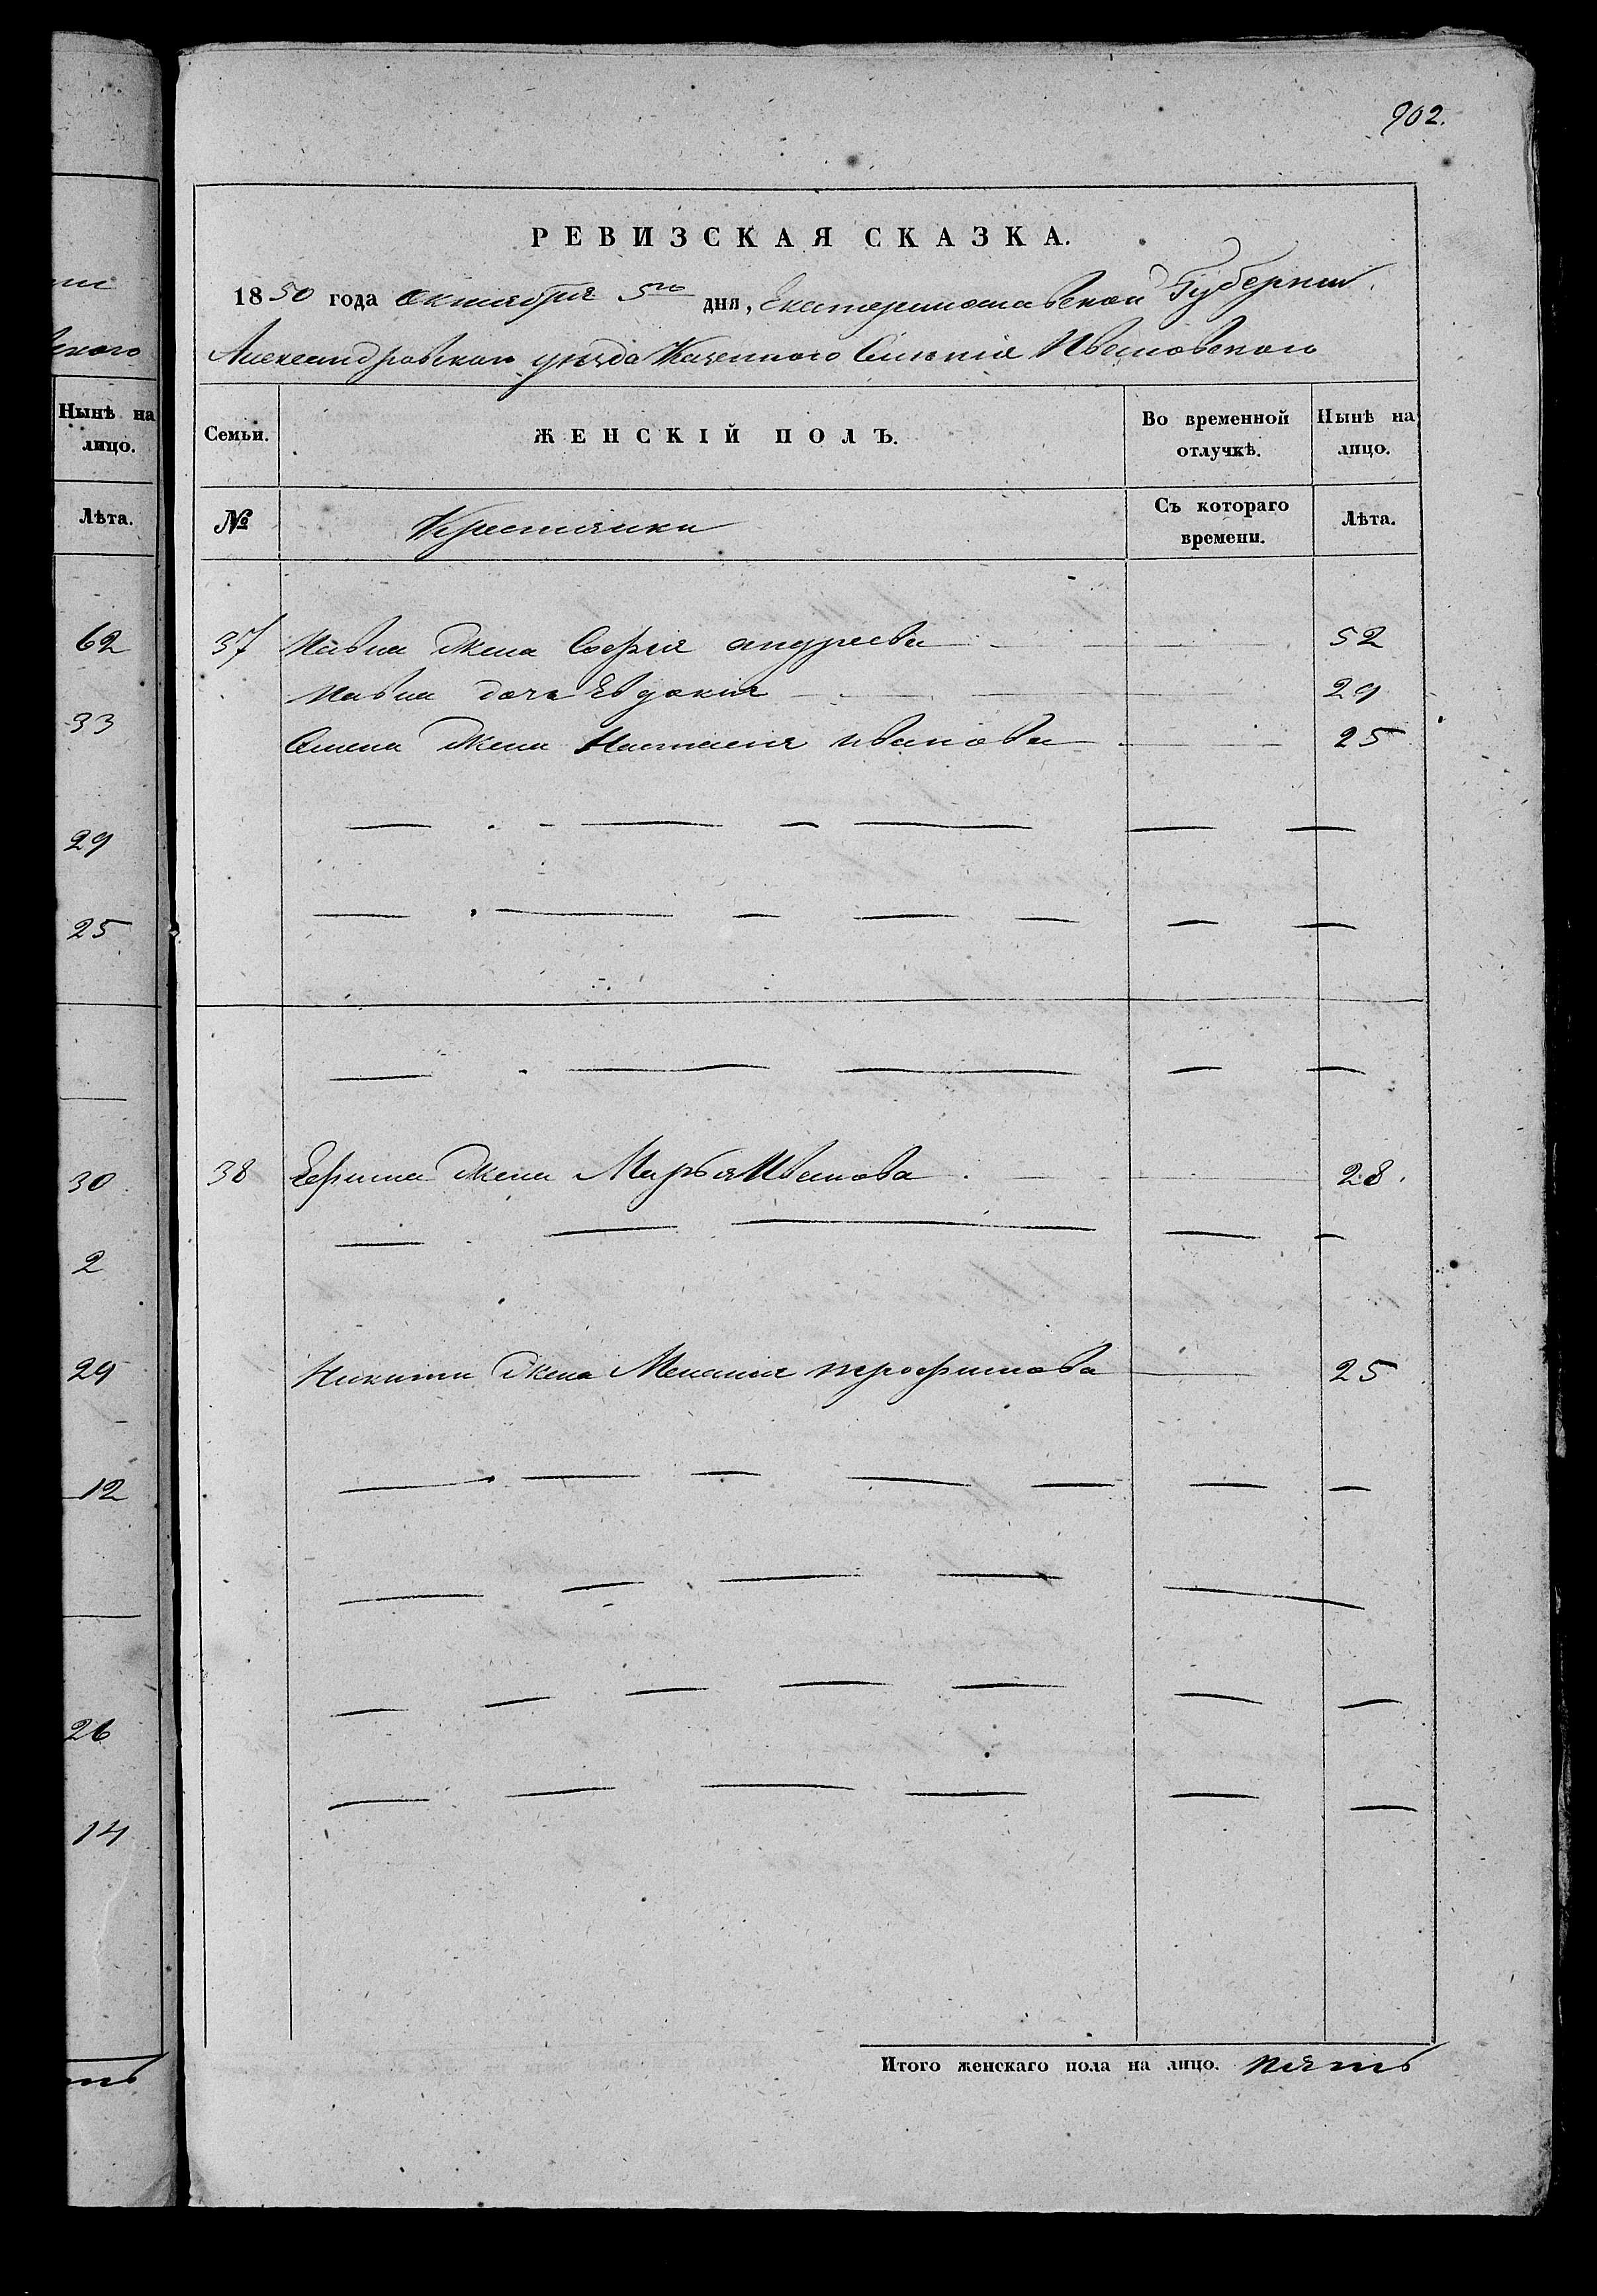 902.
РЕВИЗСКАЯ СКАЗКА.
1850 года октября 5го дня, Екатеринославской Губернии
Александровского уезда Казенного Селенія Ивановского
Нынѣ на лицо.
Лѣта.
62
33
29
25
30
2
29
12
26
14
Семьи. ЖЕНСКІЙ ПОЛЪ. Во временной отлучкѣ. Нынѣ на лицо.
№ Крестянки Съ котораго времени. Лѣта.
37 Ивана жена Софья андреева 52
Ивана дочь Евдокия 29
Семена жена Настасия иванова 25
38 Ефима жена Марья Иванова 28.
Никиты жена Мелания трофимова 25
Итого женскаго пола на лицо. пять